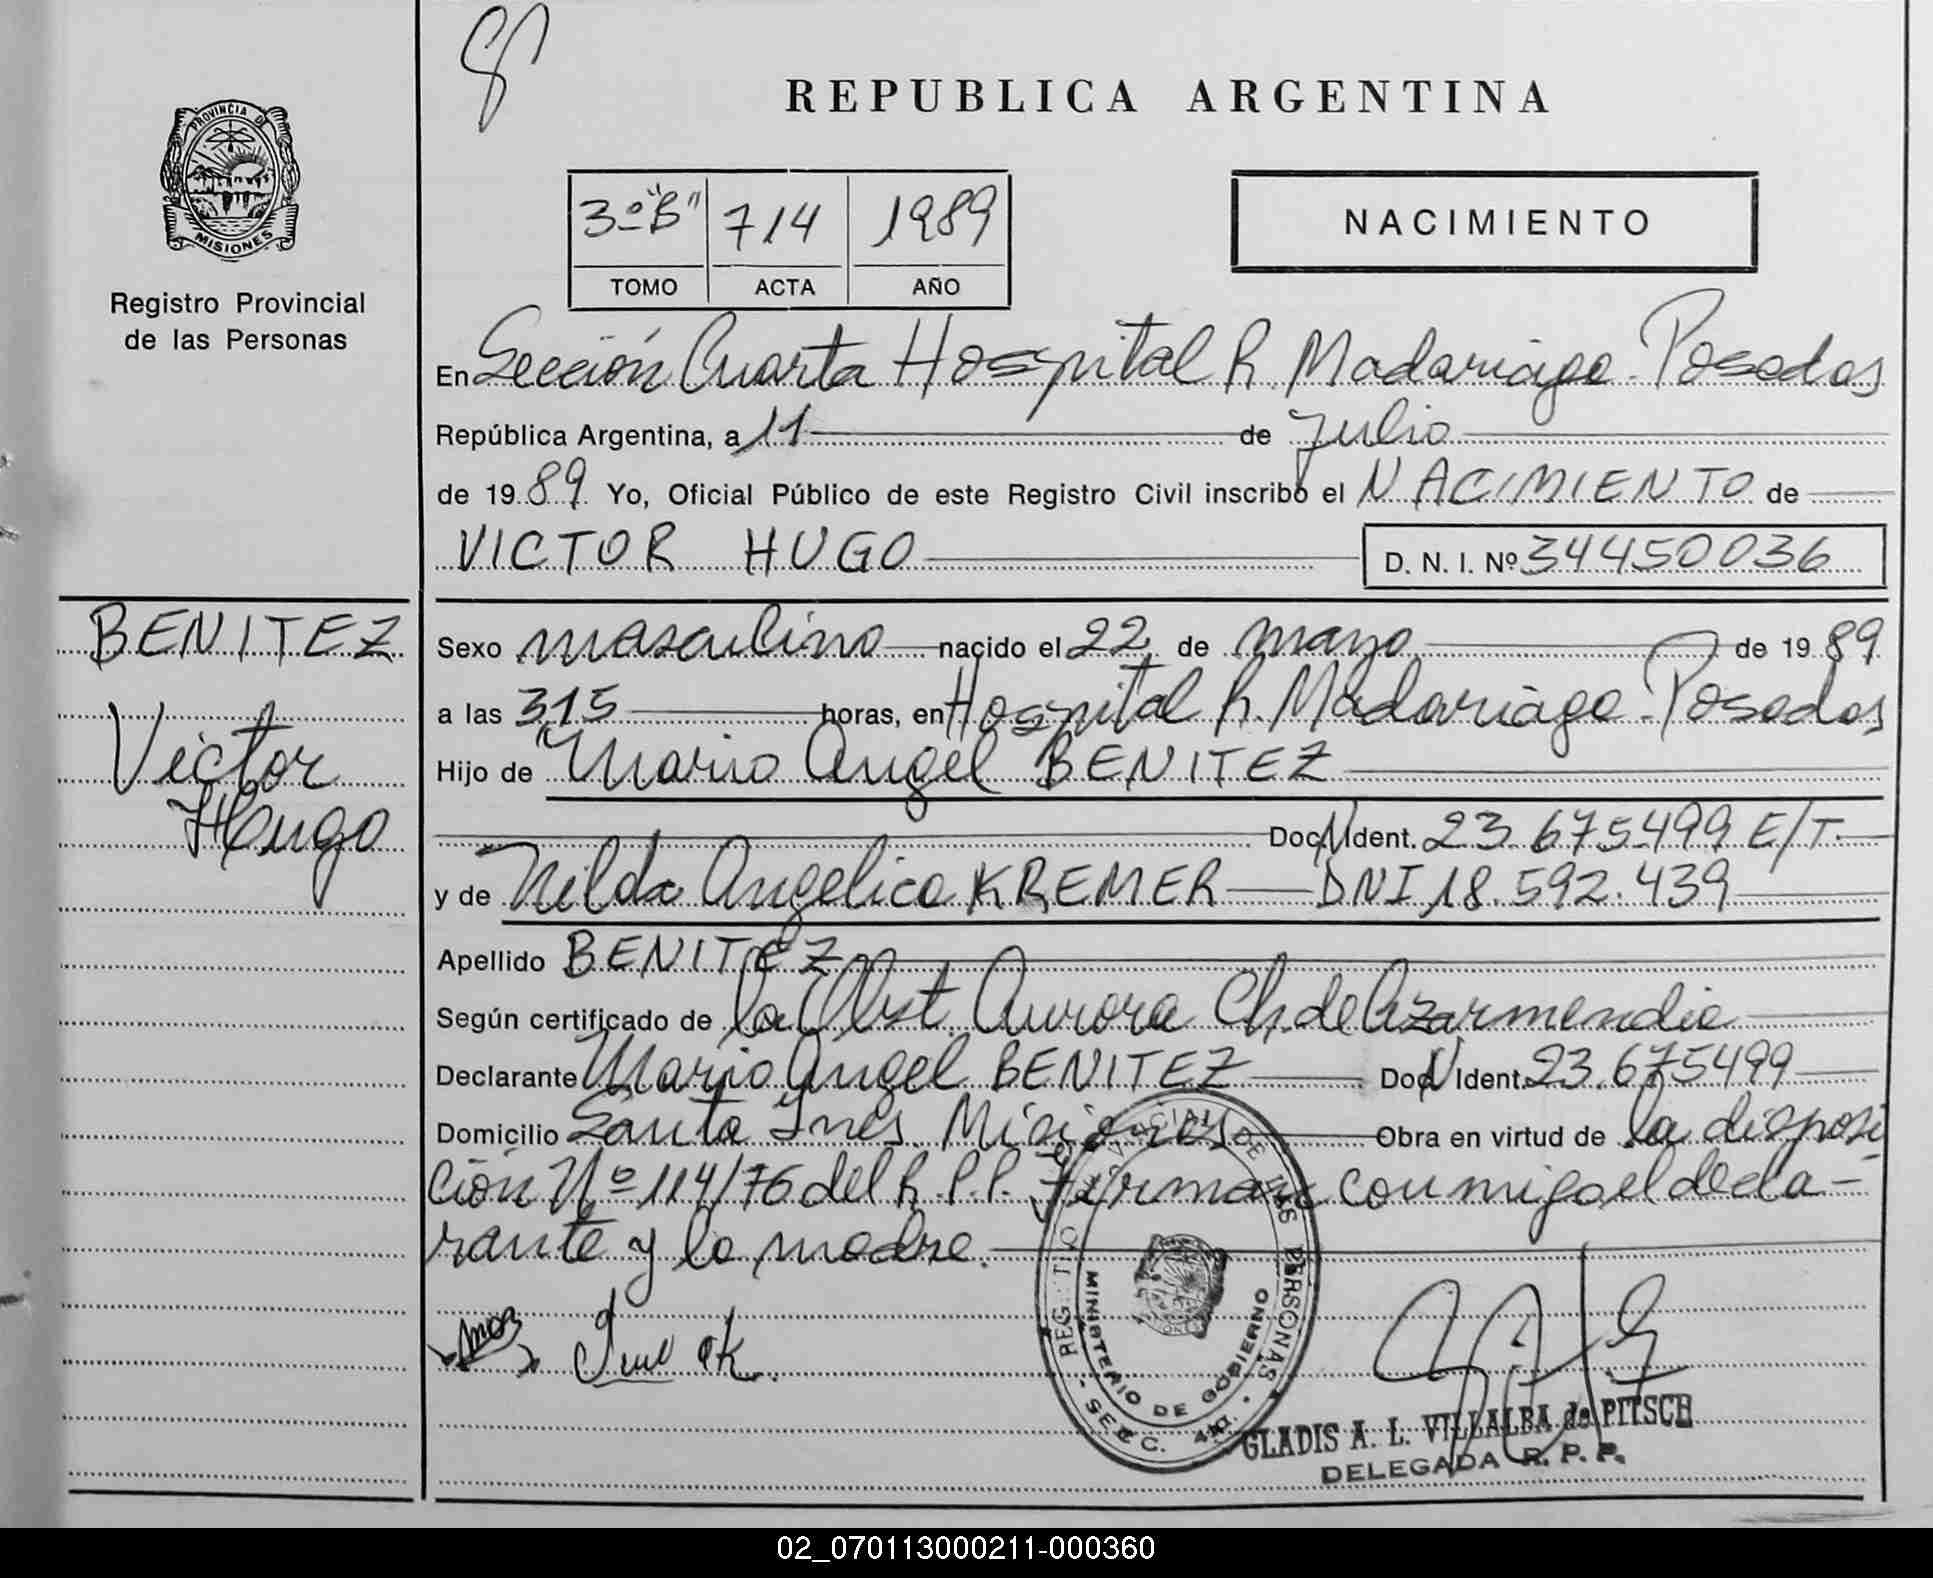 PROVINCIA DE
MISIONES
Registro Provincial
de las Personas
BENITEZ
Victor
Hugo
REPUBLICA ARGENTINA
3º "B" 714 1989
TOMO ACTA AÑO
NACIMIENTO
En Sección Cuarta Hospital R. Madariaga - Posadas
República Argentina, a 11 de Julio
de 1989 Yo, Oficial Público de este Registro Civil inscribo el NACIMIENTO de
VICTOR HUGO D. N. I. Nº 34450036
Sexo masculino nacido el 22 de mayo de 1989
a las 3,15 horas, en Hospital R. Madariaga - Posadas
Hijo de Mario Angel BENITEZ
Doc. N Ident. 23.675.499 E/T.
y de Nilda Angelica KREMER DNI 18.592.439
Apellido BENITEZ
Según certificado de la Obst. Aurora Ch. de Azarmendia
Declarante Mario Angel BENITEZ Doc. N Ident. 23.675499
Domicilio Santa Inés. Misiones Obra en virtud de la disposi
ción Nº 114/76 del R.P.P. Firman conmigo el decla-
rante y la madre.
REGISTRO PROVINCIAL DE LAS PERSONAS
MINISTERIO DE GOBIERNO
- SECC. 4ta. -
GLADIS A. L. VILLALBA de PITSCH
DELEGADA R. P. P.
02_070113000211-000360